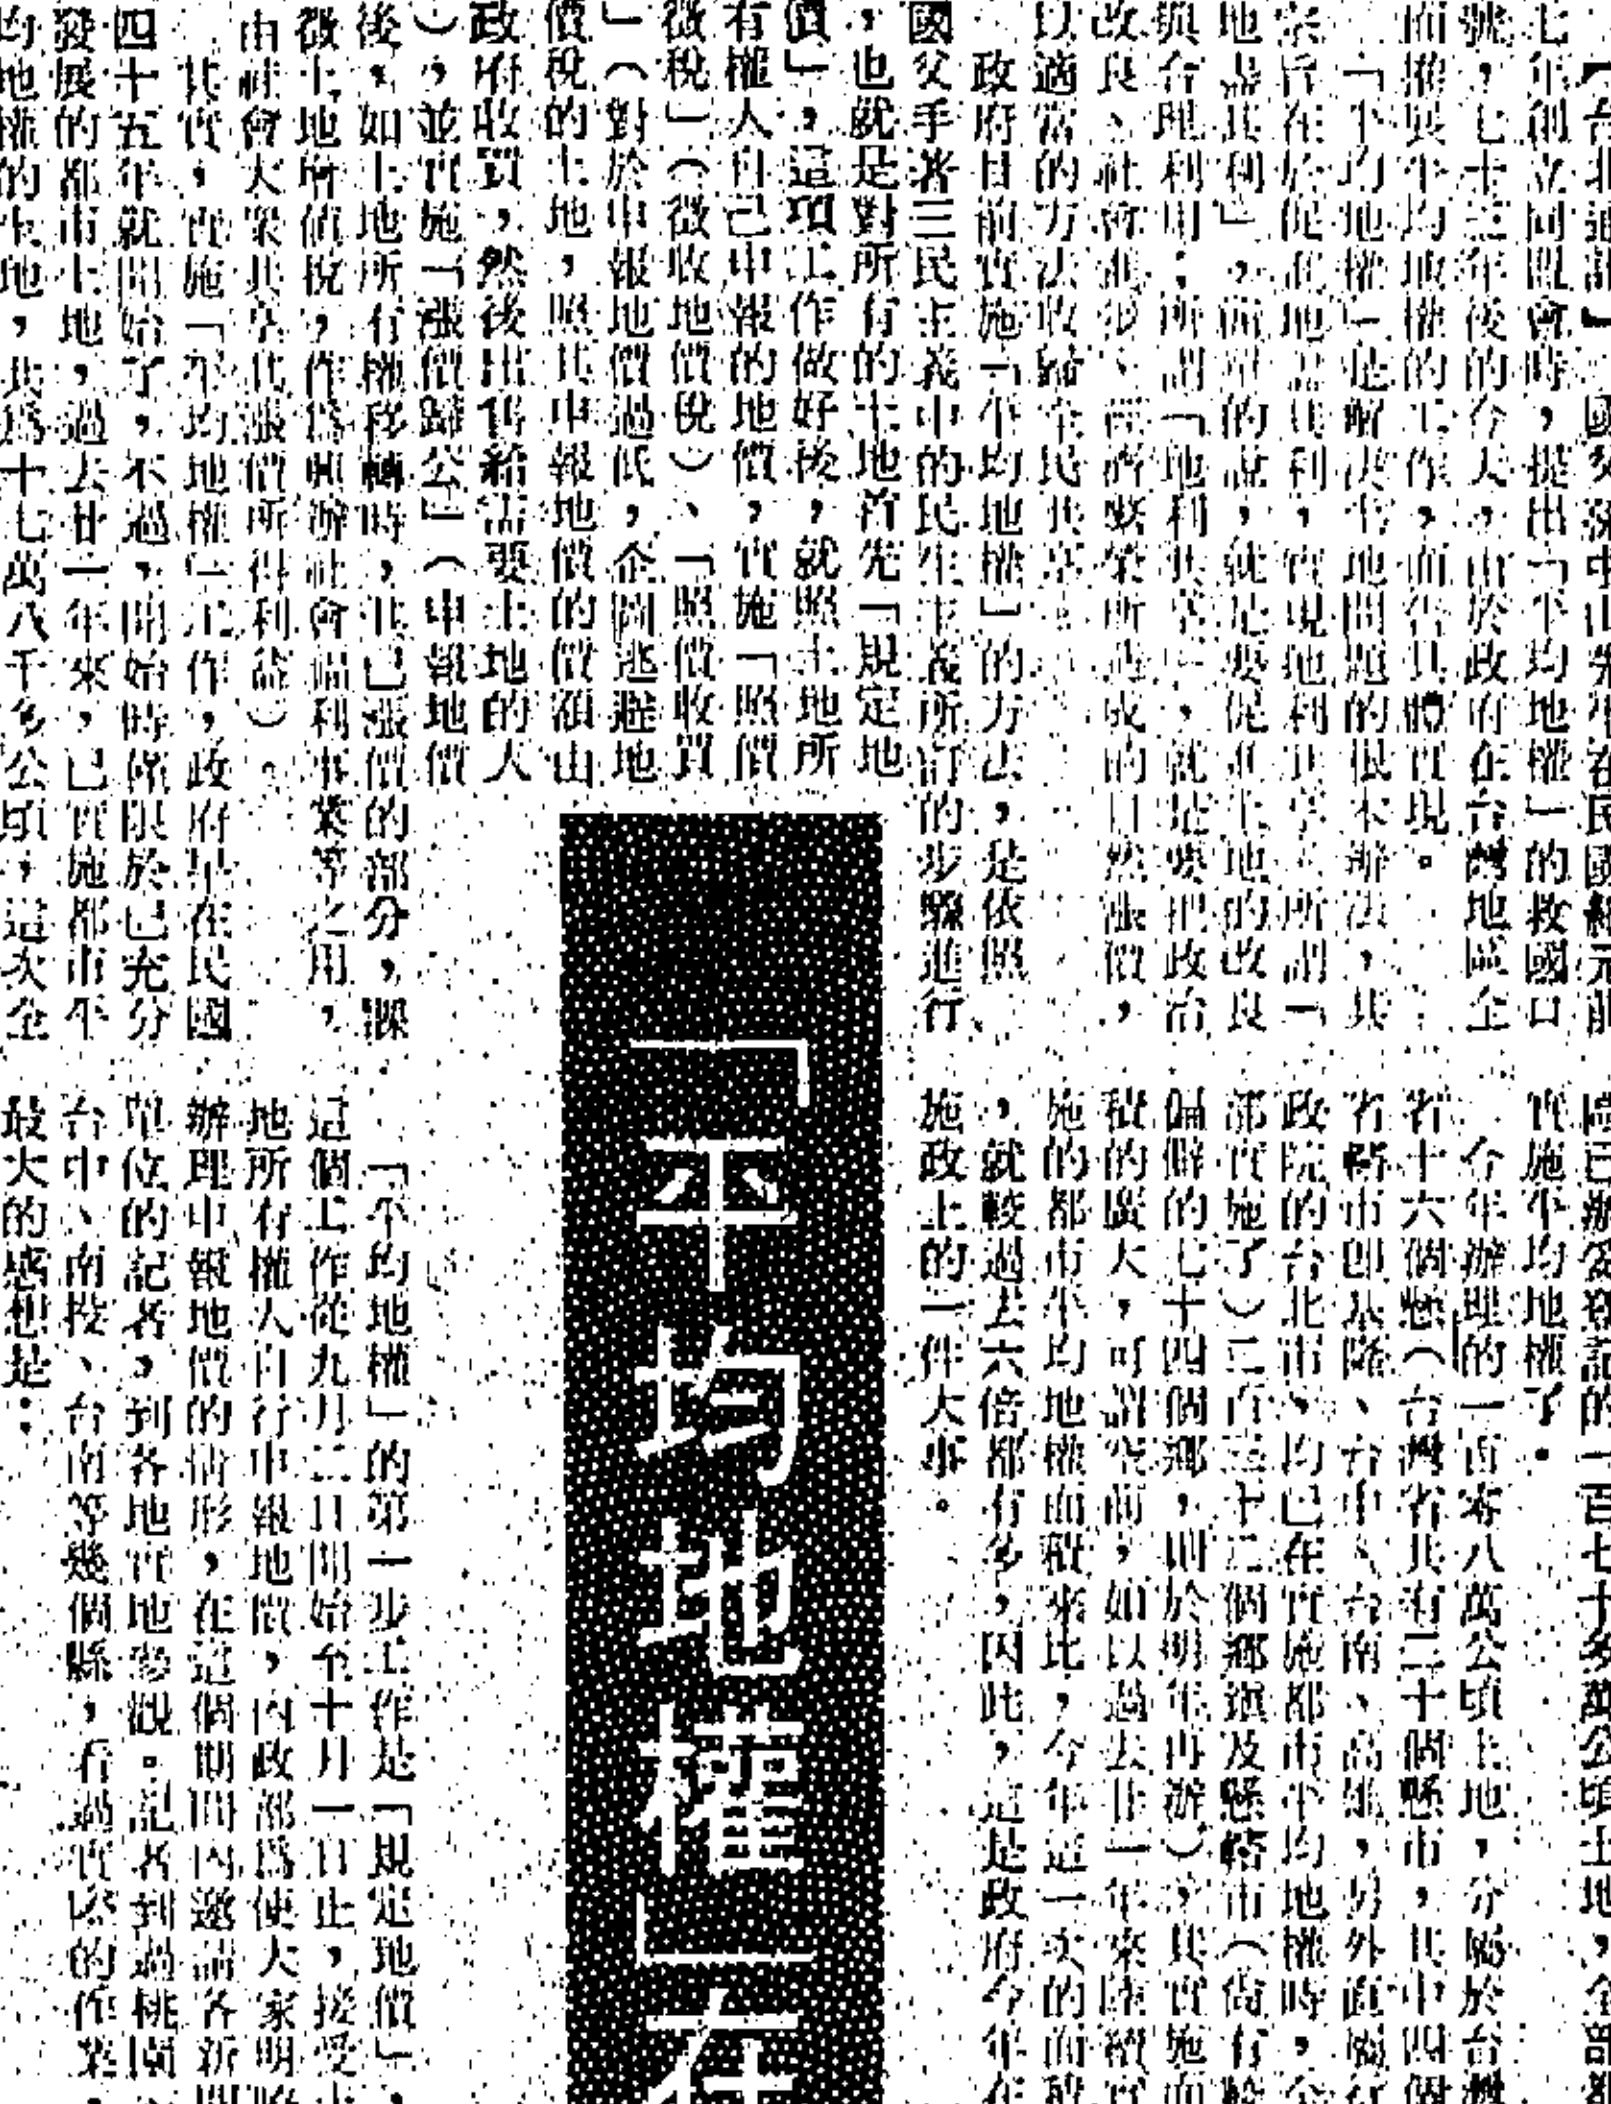 【台北通訊】國父孫中山先生在民國紀元前
七年創立同盟會時，提出「平均地權」的救國口
號，七十三年後的今天，由於政府在台灣地區全
面推展平均地權的工作，而告具體實現。
「平均地權」是解決土地問題的根本辦法，其
宗旨在於促進地盡其利，實現地利共享，所謂「
地盡其利」，簡單的說，就是要促進土地的改良
與合理利用；所謂「地利共享」，就是要把政治
改良、社會進步、經濟繁榮所造成的自然漲價，
以適當的方法收歸全民共享。
政府目前實施「平均地權」的方法，是依照
國父手著三民主義中的民生主義所訂的步驟進行
，也就是對所有的土地首先「規定地
價」，這項工作做好後，就照土地所
有權人自己申報的地價，實施「照價
徵稅」（徵收地價稅）、「照價收買
」（對於申報地價過低，企圖逃避地
價稅的土地，照其申報地價的價額由
政府收買，然後出售給需要土地的人
），並實施「漲價歸公」（申報地價
後，如土地所有權移轉時，其已漲價的部分，課
徵土地增值稅，作為興辦社會福利事業等之用，
由社會大眾共享其漲價所得利益）。
其實，實施「平均地權」工作，政府早在民國
四十五年就開始了，不過，開始時僅限於已充分
發展的都市土地，過去廿一年來，已實施都市平
均地權的土地，共為十七萬八千多公頃，這次全
「平均地權」在
陸已辦登記的一百七十多萬公頃土地，全部都
實施平均地權了。
今年辦理的一百零八萬公頃土地，分屬於台灣
省十六個縣（台灣省共有二十個縣市，其中四個
省轄市即基隆、台中、台南、高雄，另外直屬行
政院的台北市，均已在實施都市平均地權時，全
部實施了）二百三十二個鄉鎮及縣轄市（尚有較
偏僻的七十四個鄉，則於明年再辦），其實施面
積的廣大，可謂空前，如以過去廿一年來陸續實
施的都市平均地權面積來比，今年這一次的面積
，就較過去六倍都有多，因此，這是政府今年在
施政上的一件大事。
「平均地權」的第一步工作是「規定地價」，
這個工作從九月二日開始至十月一日止，接受土
地所有權人自行申報地價，內政部為使大家明瞭
辦理申報地價的情形，在這個期間內邀請各新聞
單位的記者，到各地實地參觀。記者到過桃園、
台中、南投、台南等幾個縣，看過實際的作業，
最大的感想是：